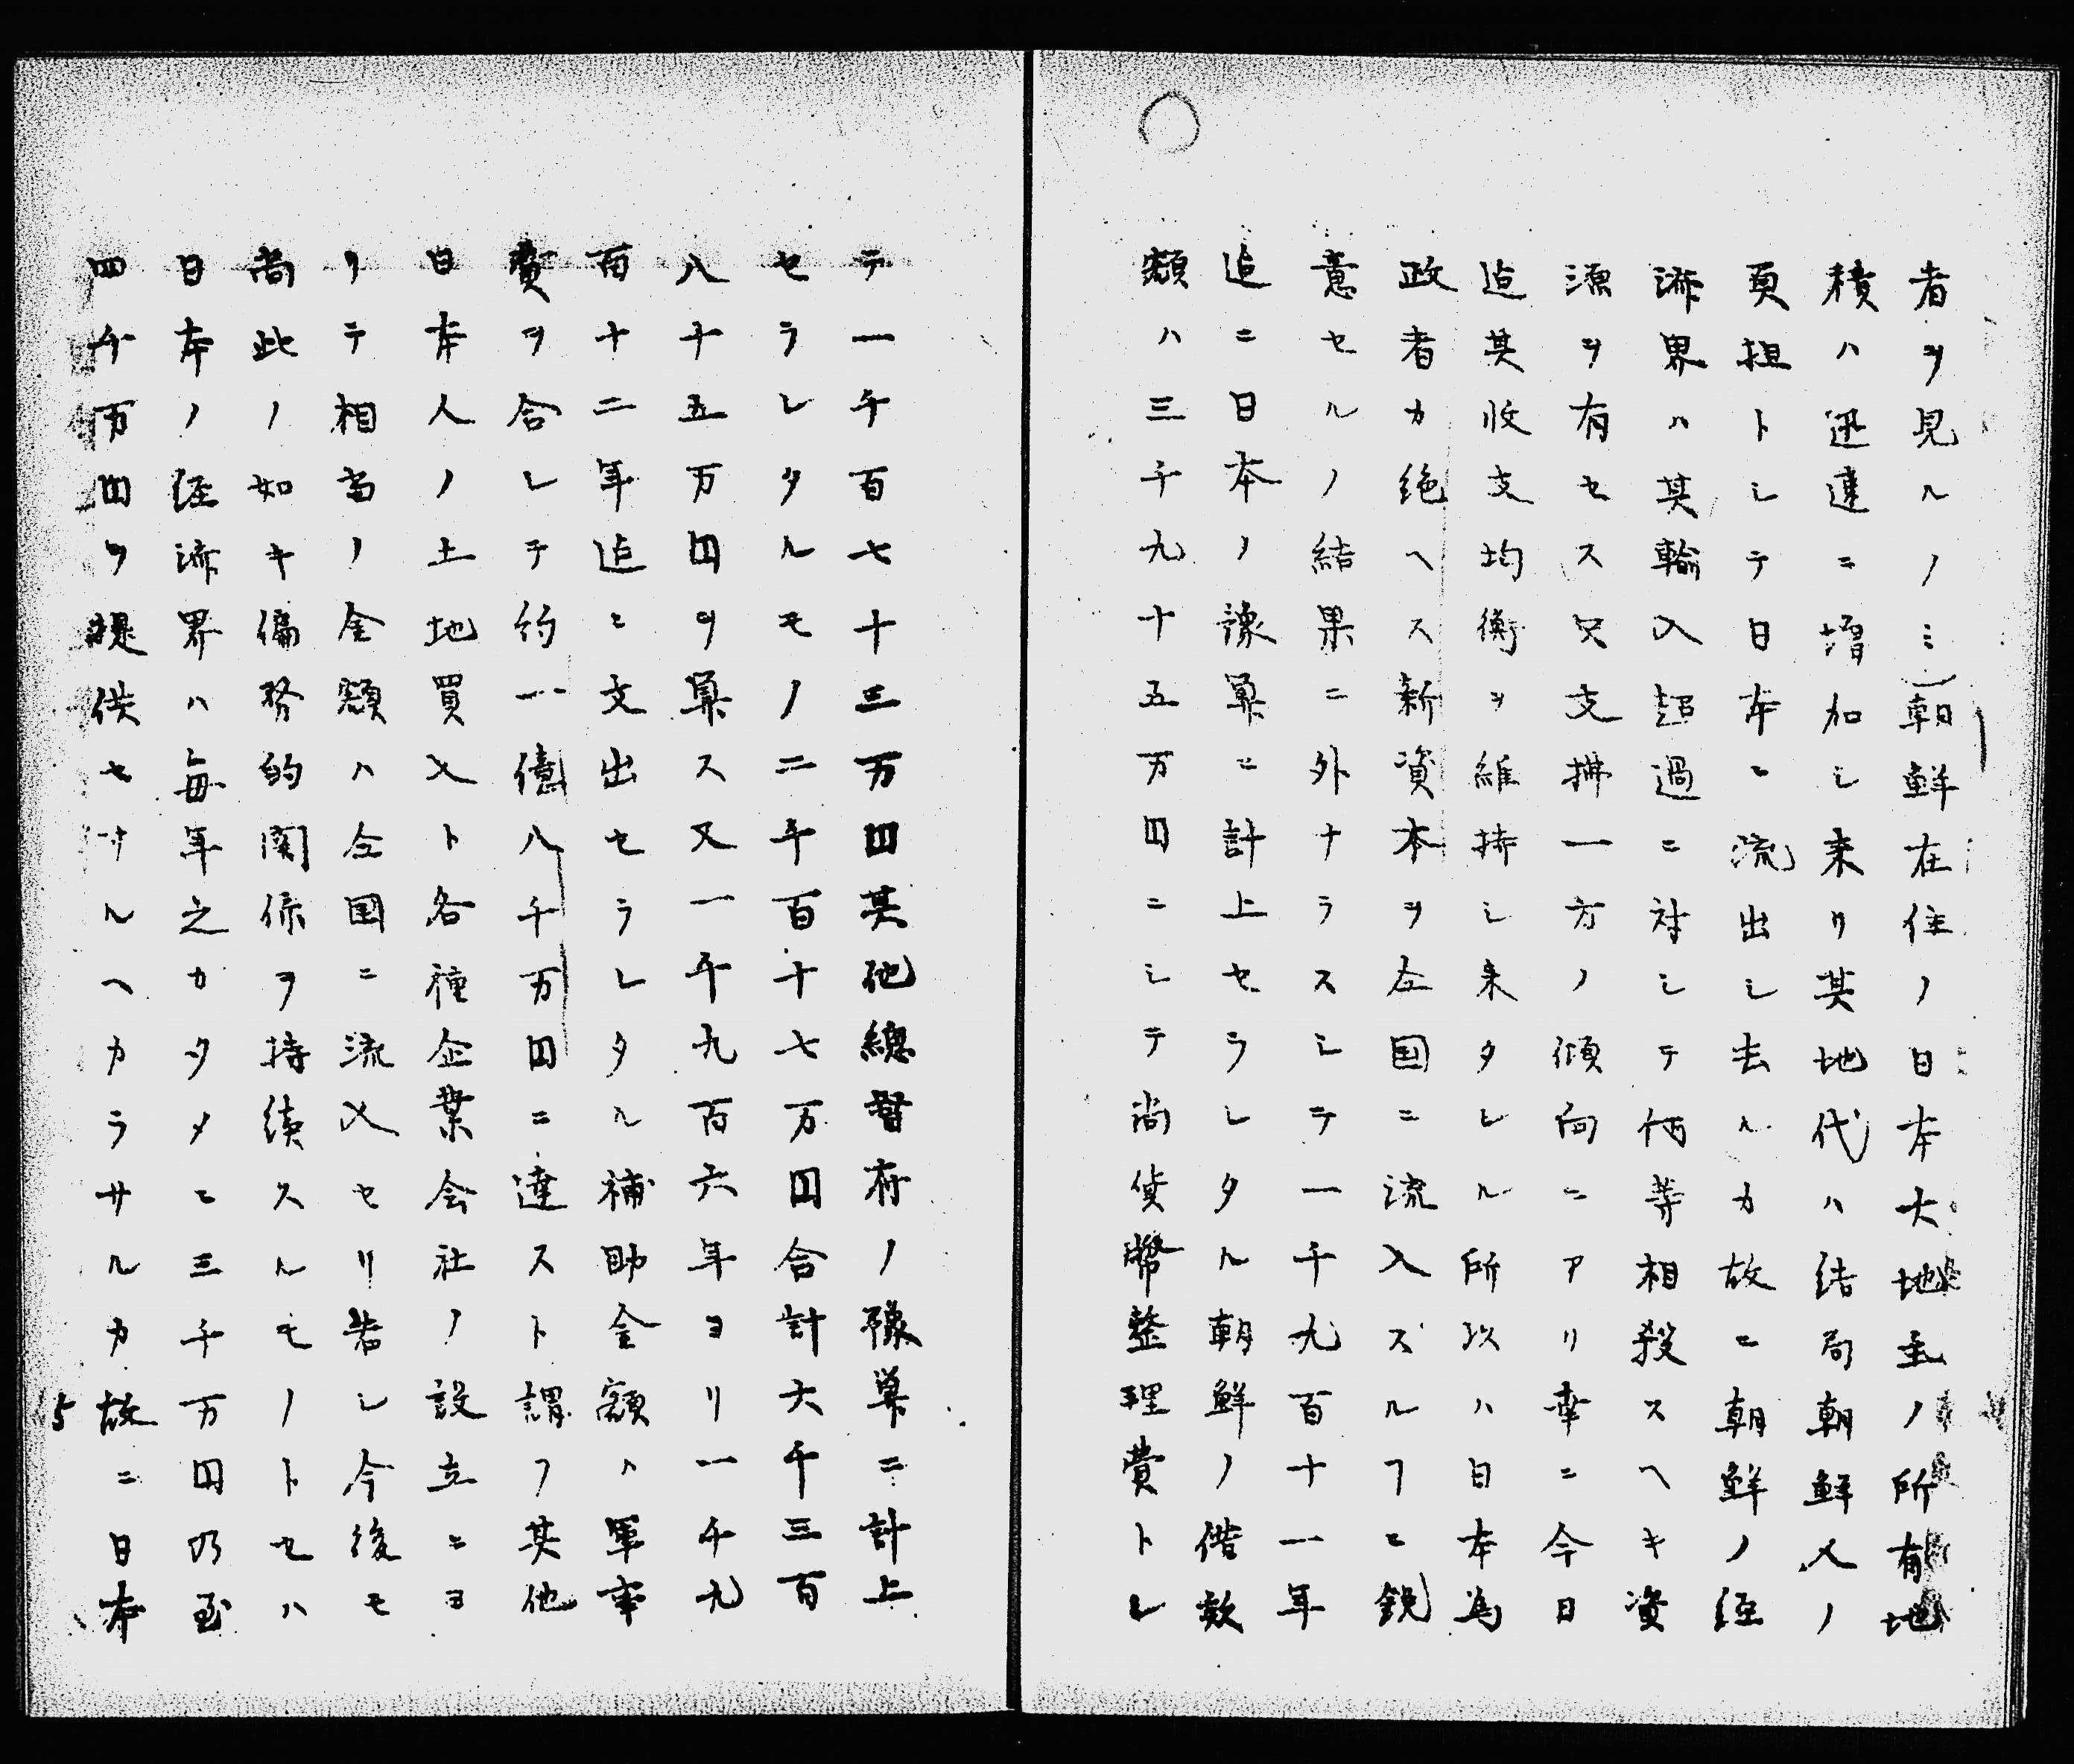 者ヲ見ルノミ朝鮮在住ノ日本大地主ノ所有地
積ハ迅速ニ増加シ来リ其地代ハ結局朝鮮人ノ
負担トシテ日本ニ流出シ去ルカ故ニ朝鮮ノ経
済界ハ其輸入超過ニ対シテ何等相殺スヘキ資
源ヲ有セス只支拂一方ノ傾向ニアリ幸ニ今日
迄其収支均衡ヲ維持シ来タレル所以ハ日本為
政者カ絶ヘス新資本ヲ仝国ニ流入ズルフニ鋭
意セルノ結果ニ外ナラスシテ一千九百十一年
迄ニ日本ノ豫算ニ計上セラレタル朝鮮ノ借款
額ハ三千九十五万円ニシテ尚貨幣整理費トシ
テ一千百七十三万円其他總督府ノ豫算ニ計上
セラレタルモノ二千百十七万円合計六千三百
八十五万円ヲ算ス又一千九百六年ヨリ一千九
百十二年迄ニ支出セラレタル補助金額ハ軍事
費ヲ合シテ約一億八千万円ニ達スト謂フ其他
日本人ノ土地買入ト各種企業会社ノ設立ニヨ
リテ相当ノ金額ハ仝国ニ流入セリ若シ今後モ
尚此ノ如キ偏務的関係ヲ持続スルモノトセハ
日本ノ経済界ハ毎年之カタメニ三千万円乃至
四千万円ヲ提供セサルヘカラサルカ故ニ日本
5